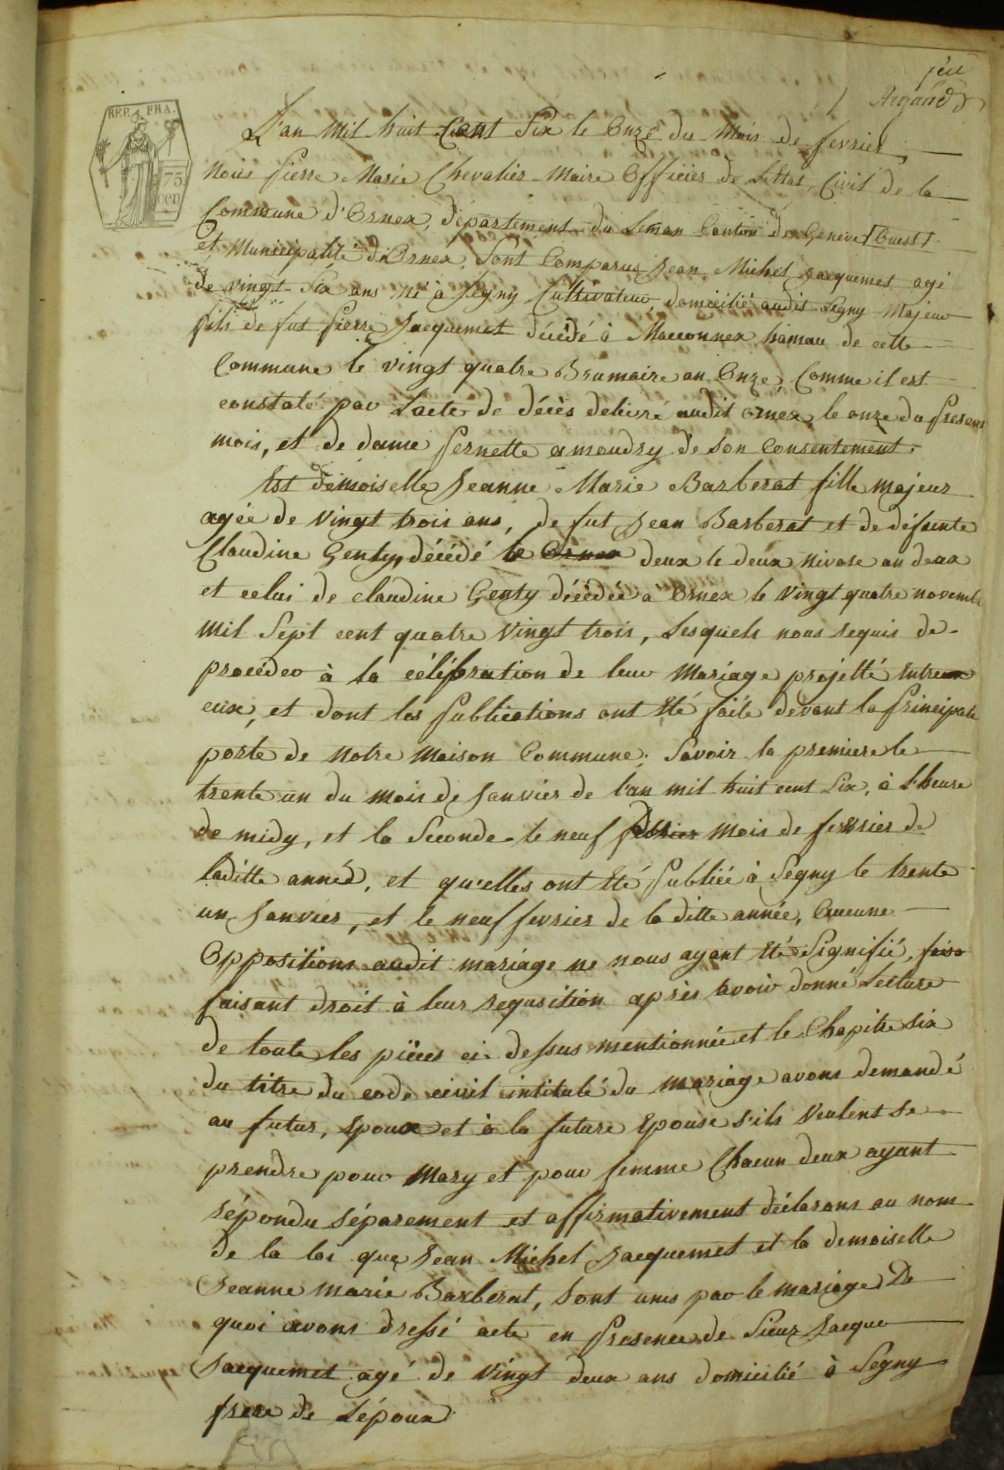 jeu
Argand
REP. FRA.
75
cen
L'an Mil huit Cent Six le Onze du Mois de fevrier
Nous pierre Marie Chevalier Maire Officier de Lettat Civil de la
Commune d'Ornex, departement du Leman Canton de Geneve (Ouest)
et Municipalité d'Ornex, Sont Comparus Jean Michel Jacquemet agé
de vingt Six ans né à Segny Cultivateur domicilié audit Segny Majeur
fils de fut pierre Jacquemet décédé à Maconnex hamau de cette
Commune le vingt quatre Brumaire an Onze, Comme il est
constaté par Lacte de décès delivré audit ornex le onze du present
mois, et de dame pernette amaudry de Son Consentement.
Est demoiselle Jeanne Marie Barberat fille majeur
agée de vingt trois ans, de fut Jean Barberat et de défunte
Claudine Genty, décédé le Ornex deux le deux Nivose an deux
et celui de claudine Genty décédée a Ornex le vingt quatre novembre
mil Sept cent quatre vingt trois, Lesquels nous requis de
procéder à la célébration de leur Mariage projetté Entre
eux, et dont les publications ont Eté faite devant la principale
porte de Notre Maison Commune; Savoir la premiere le
trente un du mois de Janvier de l'an mil huit cent Six, à l'heure
de midy, et la Seconde le neuf mois de fevrier de
laditte année, et qu'elles ont Eté publiée à Segny le trente
un Janvier, et le neuf fevrier de la ditte année, Aucune
Oppositions audit mariage ne nous ayant Eté Signifié, faisa
faisant droit à leur requsition après avoir donné Lecture
de toute les piéces ci-dessus mentionnée et le Chapitre six
du titre du code civil intitulé du Mariage avons demandé
au futur, Epoux et à la future Epouse s'ils veulent se
prendre pour Mary et pour femme Chacun deux ayant
répondu séparement et affirmativement déclarons au nom
de la loi que Jean Michel Jacquemet et la demoiselle
Jeanne Marie Barberat, Sont unis par le mariage De
quoi avons dressé acte en presence de Sieur Jacque
Jacquemet agé de vingt deux ans domicilié à Segny
frere de Lépoux